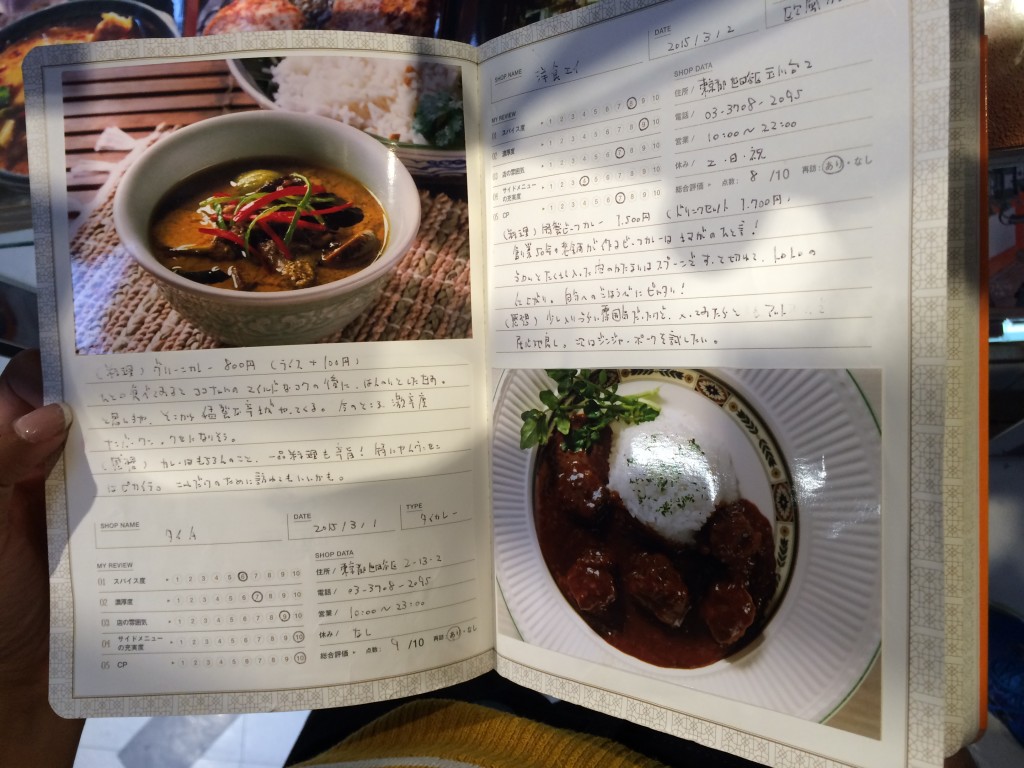 (料理) グリーンカレー 800円 (ライス+100円)
ココナルの マイルドなコクの後に、ほんのりとした甘み。
と思いきや、そこから 猛烈な辛さが やってくる。 今のところ、激辛度
ナンバーワン
(感想) カレーはもちろんのこと、一品料理も 辛度! 特にヤムウンセン
はピカイチ。 これだけのために訪れてもいいかも。
SHOP NAME タイ
DATE 2015/3/1
TYPE タイカレー
MY REVIEW
01 スパイス度 1 2 3 4 5 6 7 8 9 10
02 濃厚度 1 2 3 4 5 6 7 8 9 10
03 店の雰囲気 1 2 3 4 5 6 7 8 9 10
04 サイドメニューの充実度 1 2 3 4 5 6 7 8 9 10
05 CP 1 2 3 4 5 6 7 8 9 10
SHOP DATA
住所/ 東京都世田谷区 2-13-2
電話/ 03-3708-2095
営業/ 10:00〜23:00
休み/ なし
総合評価 点数: 9 /10 再訪:あり・なし
SHOP NAME 洋食
DATE 2015/3/2
MY REVIEW
01 スパイス度 1 2 3 4 5 6 7 8 9 10
02 濃厚度 1 2 3 4 5 6 7 8 9 10
03 店の雰囲気 1 2 3 4 5 6 7 8 9 10
04 サイドメニューの充実度 1 2 3 4 5 6 7 8 9 10
05 CP 1 2 3 4 5 6 7 8 9 10
SHOP DATA
住所/ 東京都世田谷区玉川台2
電話/ 03-3708-2095
営業/ 10:00〜22:00
休み/ 土・日・祝
総合評価 点数: 8 /10 再訪:あり・なし
(料理) ビーフカレー 1,500円 (ドリンクセット 1,700円)
創業50年の老舗が作るビーフカレーは さすがのひと言!
たくさん入った肉のかたまりはスプーンですっと切れて、ホロホロの
仕上がり。 自分へのごほうびにぴったり!
(感想) 少し入りづらい雰囲気だったけど、入ってみたら
居心地良し。 次はジンジャーポークを試したい。